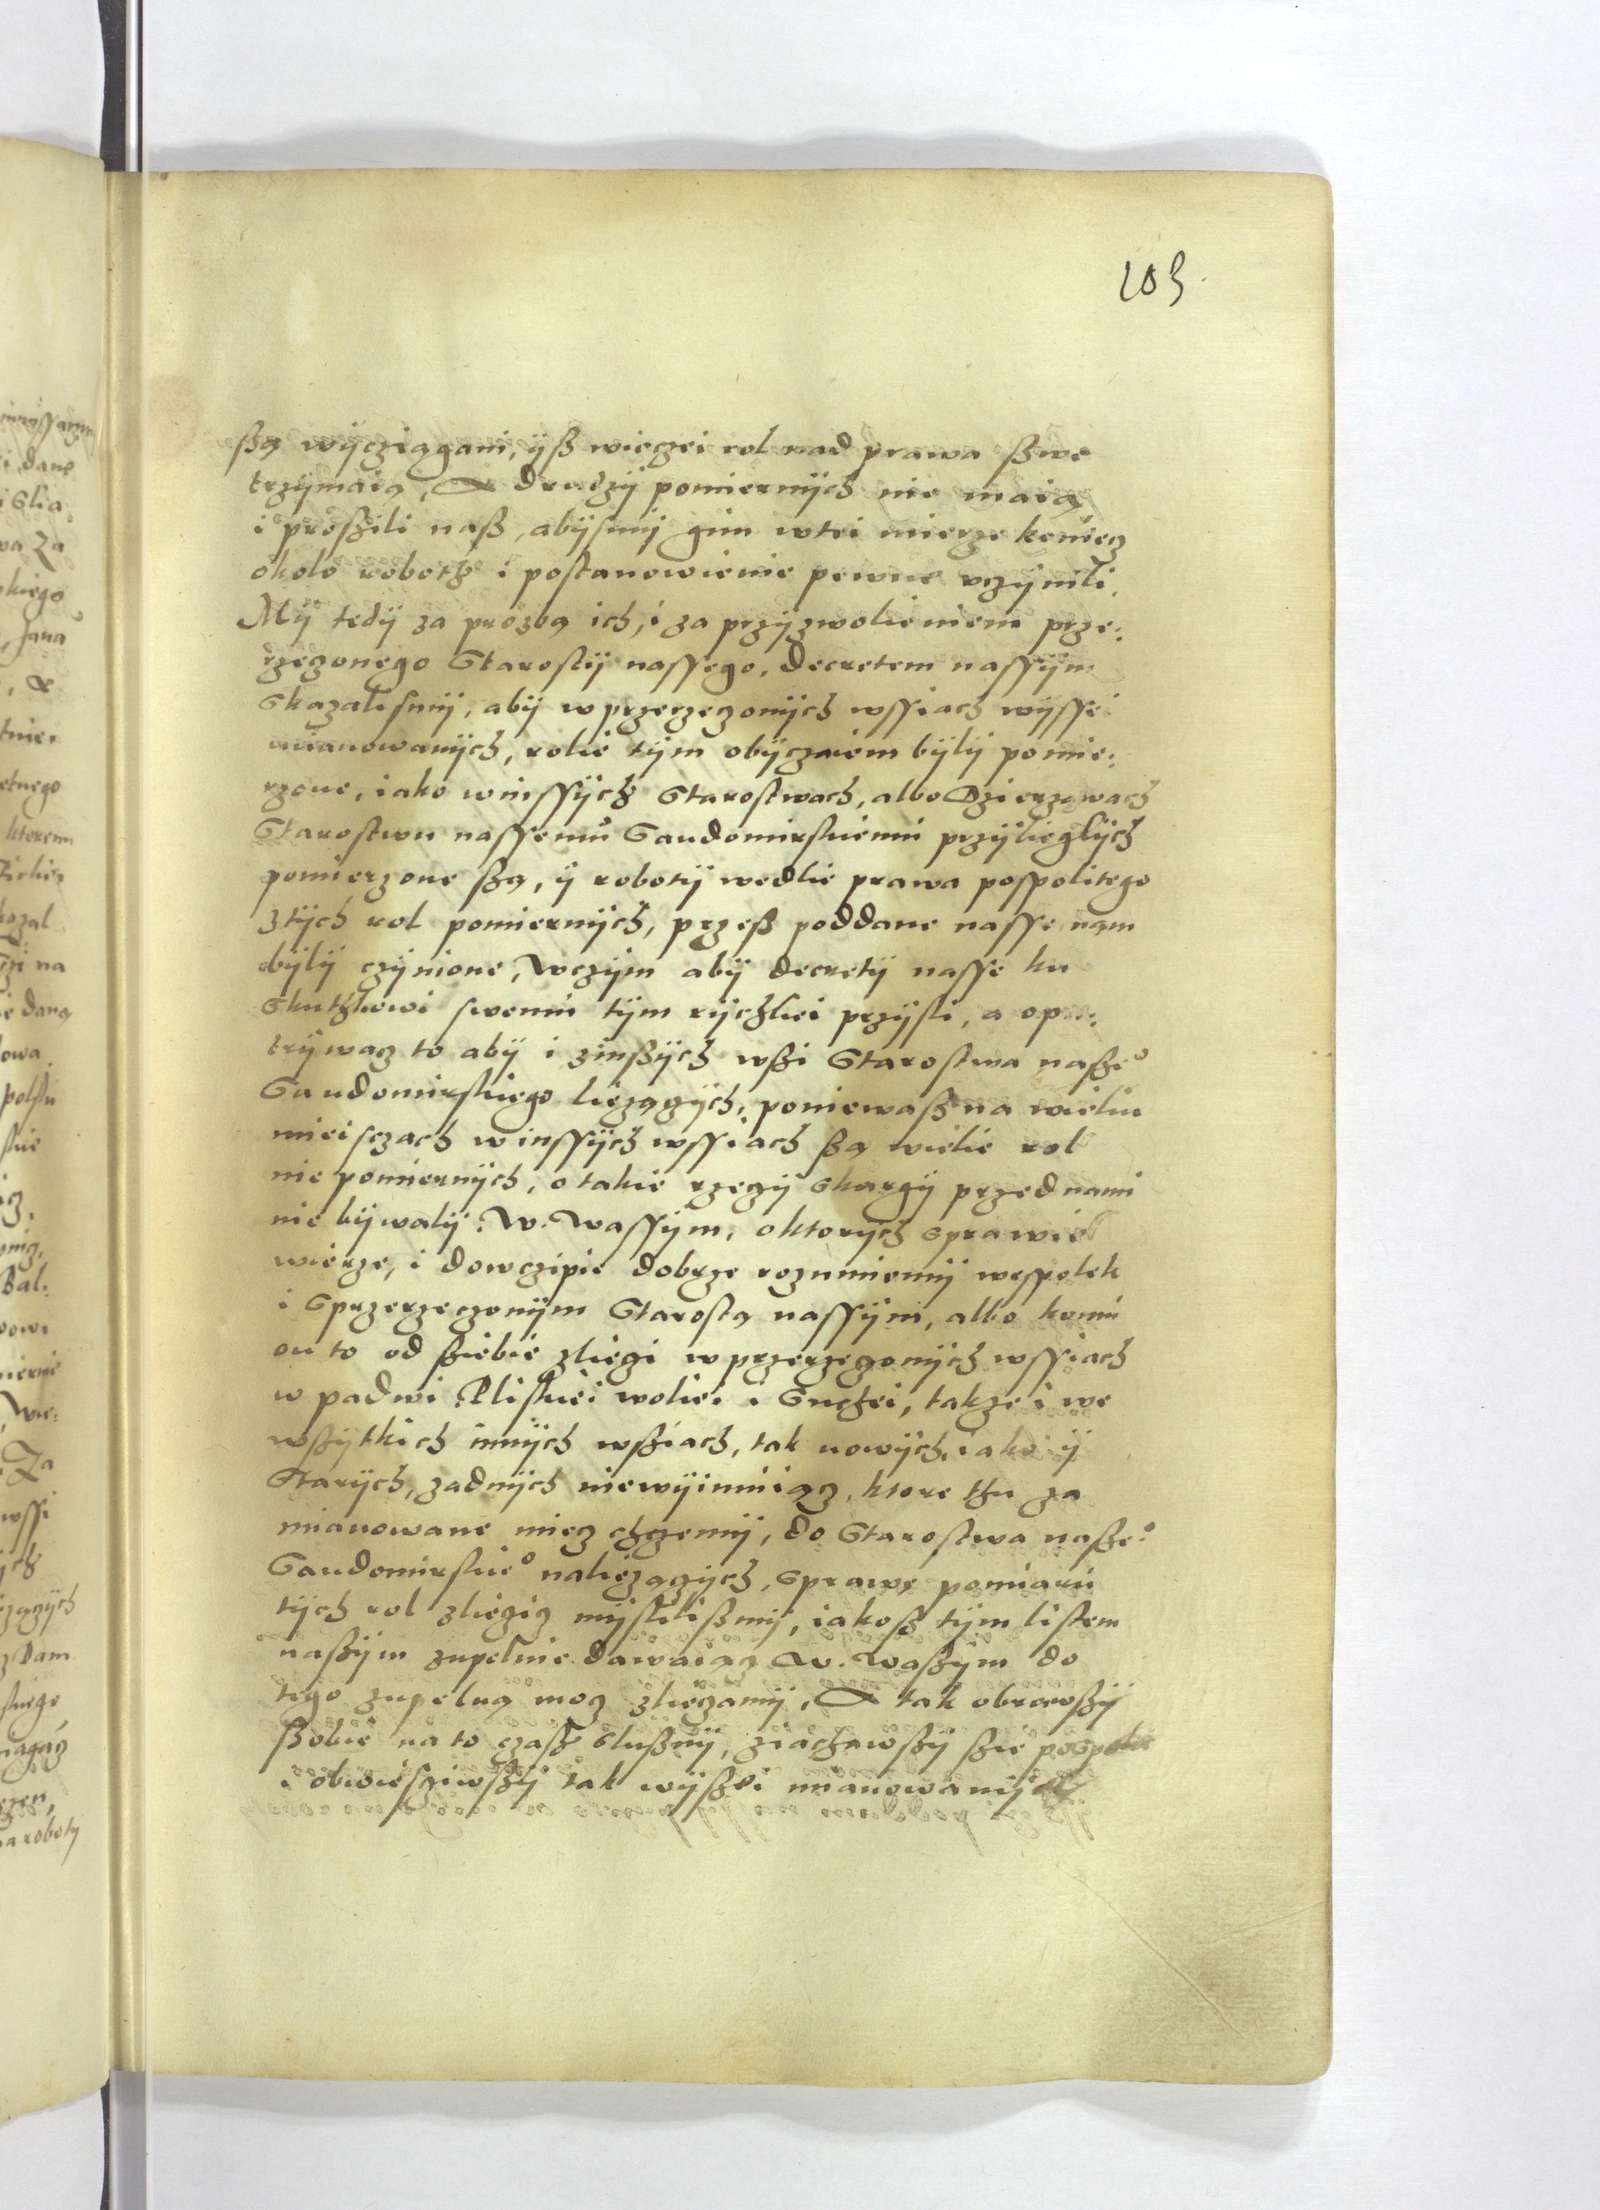 103
ßą wÿcziągani, ÿß wieczei rol nad prawa ßwe
trzÿmaią, A drudzÿ pomiernÿch nie maią
i proßili naß, abÿsmÿ gim wtei mierze koniecz
okolo roboth i postanowienie pewne vczÿnili.
Mÿ tedÿ za prozbą ich, i za przÿzwolieniem prze:
rzeczonego Starostÿ nassego, decretem nassÿm
skazalismÿ, abÿ wprzerzeczonÿch wssiach wÿssei
mianowanÿch, rolie tÿm obÿczaiem bÿlÿ pomie:
rzone, iako winssÿch Starostwach, albo Dzierzawach
Starostwu nassemu Sandomirskiemu przÿlieglÿch
pomierzone ßą, ÿ robotÿ wedlie prawa pospolitego
ztÿch rol pomiernÿch, przeß poddane nasse nam
bÿlÿ czÿnione, Wczÿm abÿ decretÿ nasse ku
skuthkowi swemu tÿm rÿchliei przÿsli, a opa:
trÿwacz to abÿ i zinßÿch wßi Starostwa naße°
Sandomirskiego liezączÿch, poniewaß na wieliu
mieisczach winssÿch wssiach ßą wielie rol
nie pomiernÿch, o takie rzeczÿ skargÿ przed nami
nie bÿwalÿ. W. Wassÿm, oktorÿch sprawie
wierze, i dowczipie dobrze rozumiemÿ wespolek
i sprzerzeczonÿm Starostą nassÿm, albo komu
on to od ßiebie zlieczi wprzerzeczonÿch wssiach
w padwi Pliskiei woliei i Suchei, takze i we
wßÿtkich innÿch wßiach, tak nowÿch, iako ÿ
Starÿch, zadnÿch niewÿimuiącz, ktore thu za
mianowane miecz chczemÿ, do Starostwa naße°
Sandomirskie° naliezączÿch, sprawę pomiaru
tÿch rol zliecicz mÿslilißmÿ, iakoß tÿm listem
naßÿm zupelnie dawaiącz W. Waßÿm do
tego zupelną mocz zlieczamÿ, A tak obrawßÿ
ßobie na to czaß slußnÿ, ziachawßÿ ßie pospolu
i obwiesciwßÿ tak wÿßei mianowanÿch